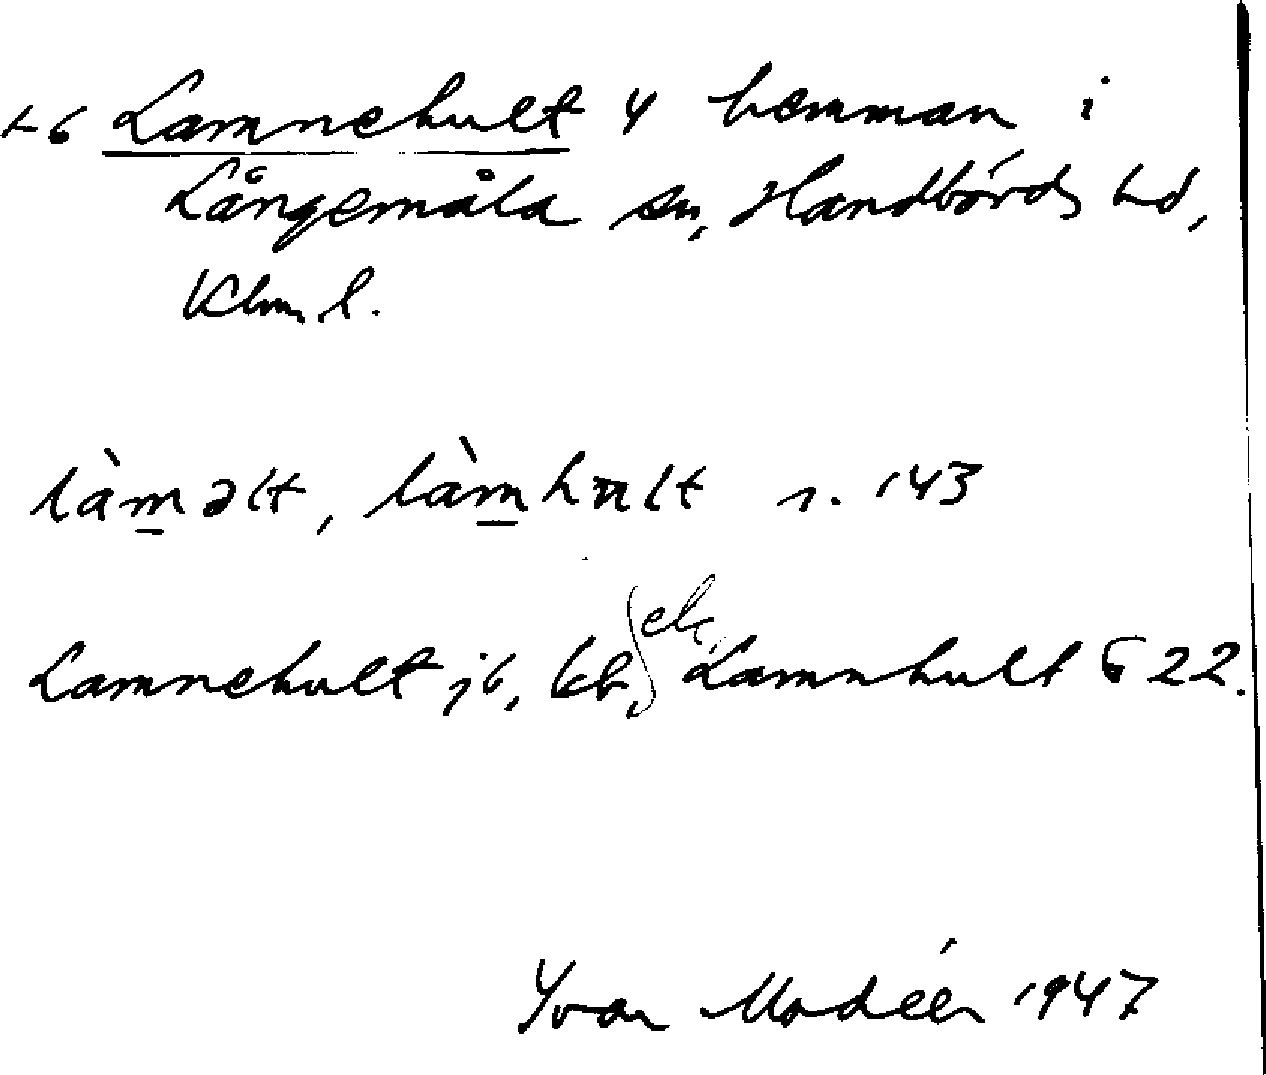 Lamnehult 4 hemman i
Långemåla sn, Handbörds hd,
Klm l.
làm̲əlt, làm̲hult s. 143
Lamnehult jb, kb, Lamnhult G 22.
Yvar Modéer 1947